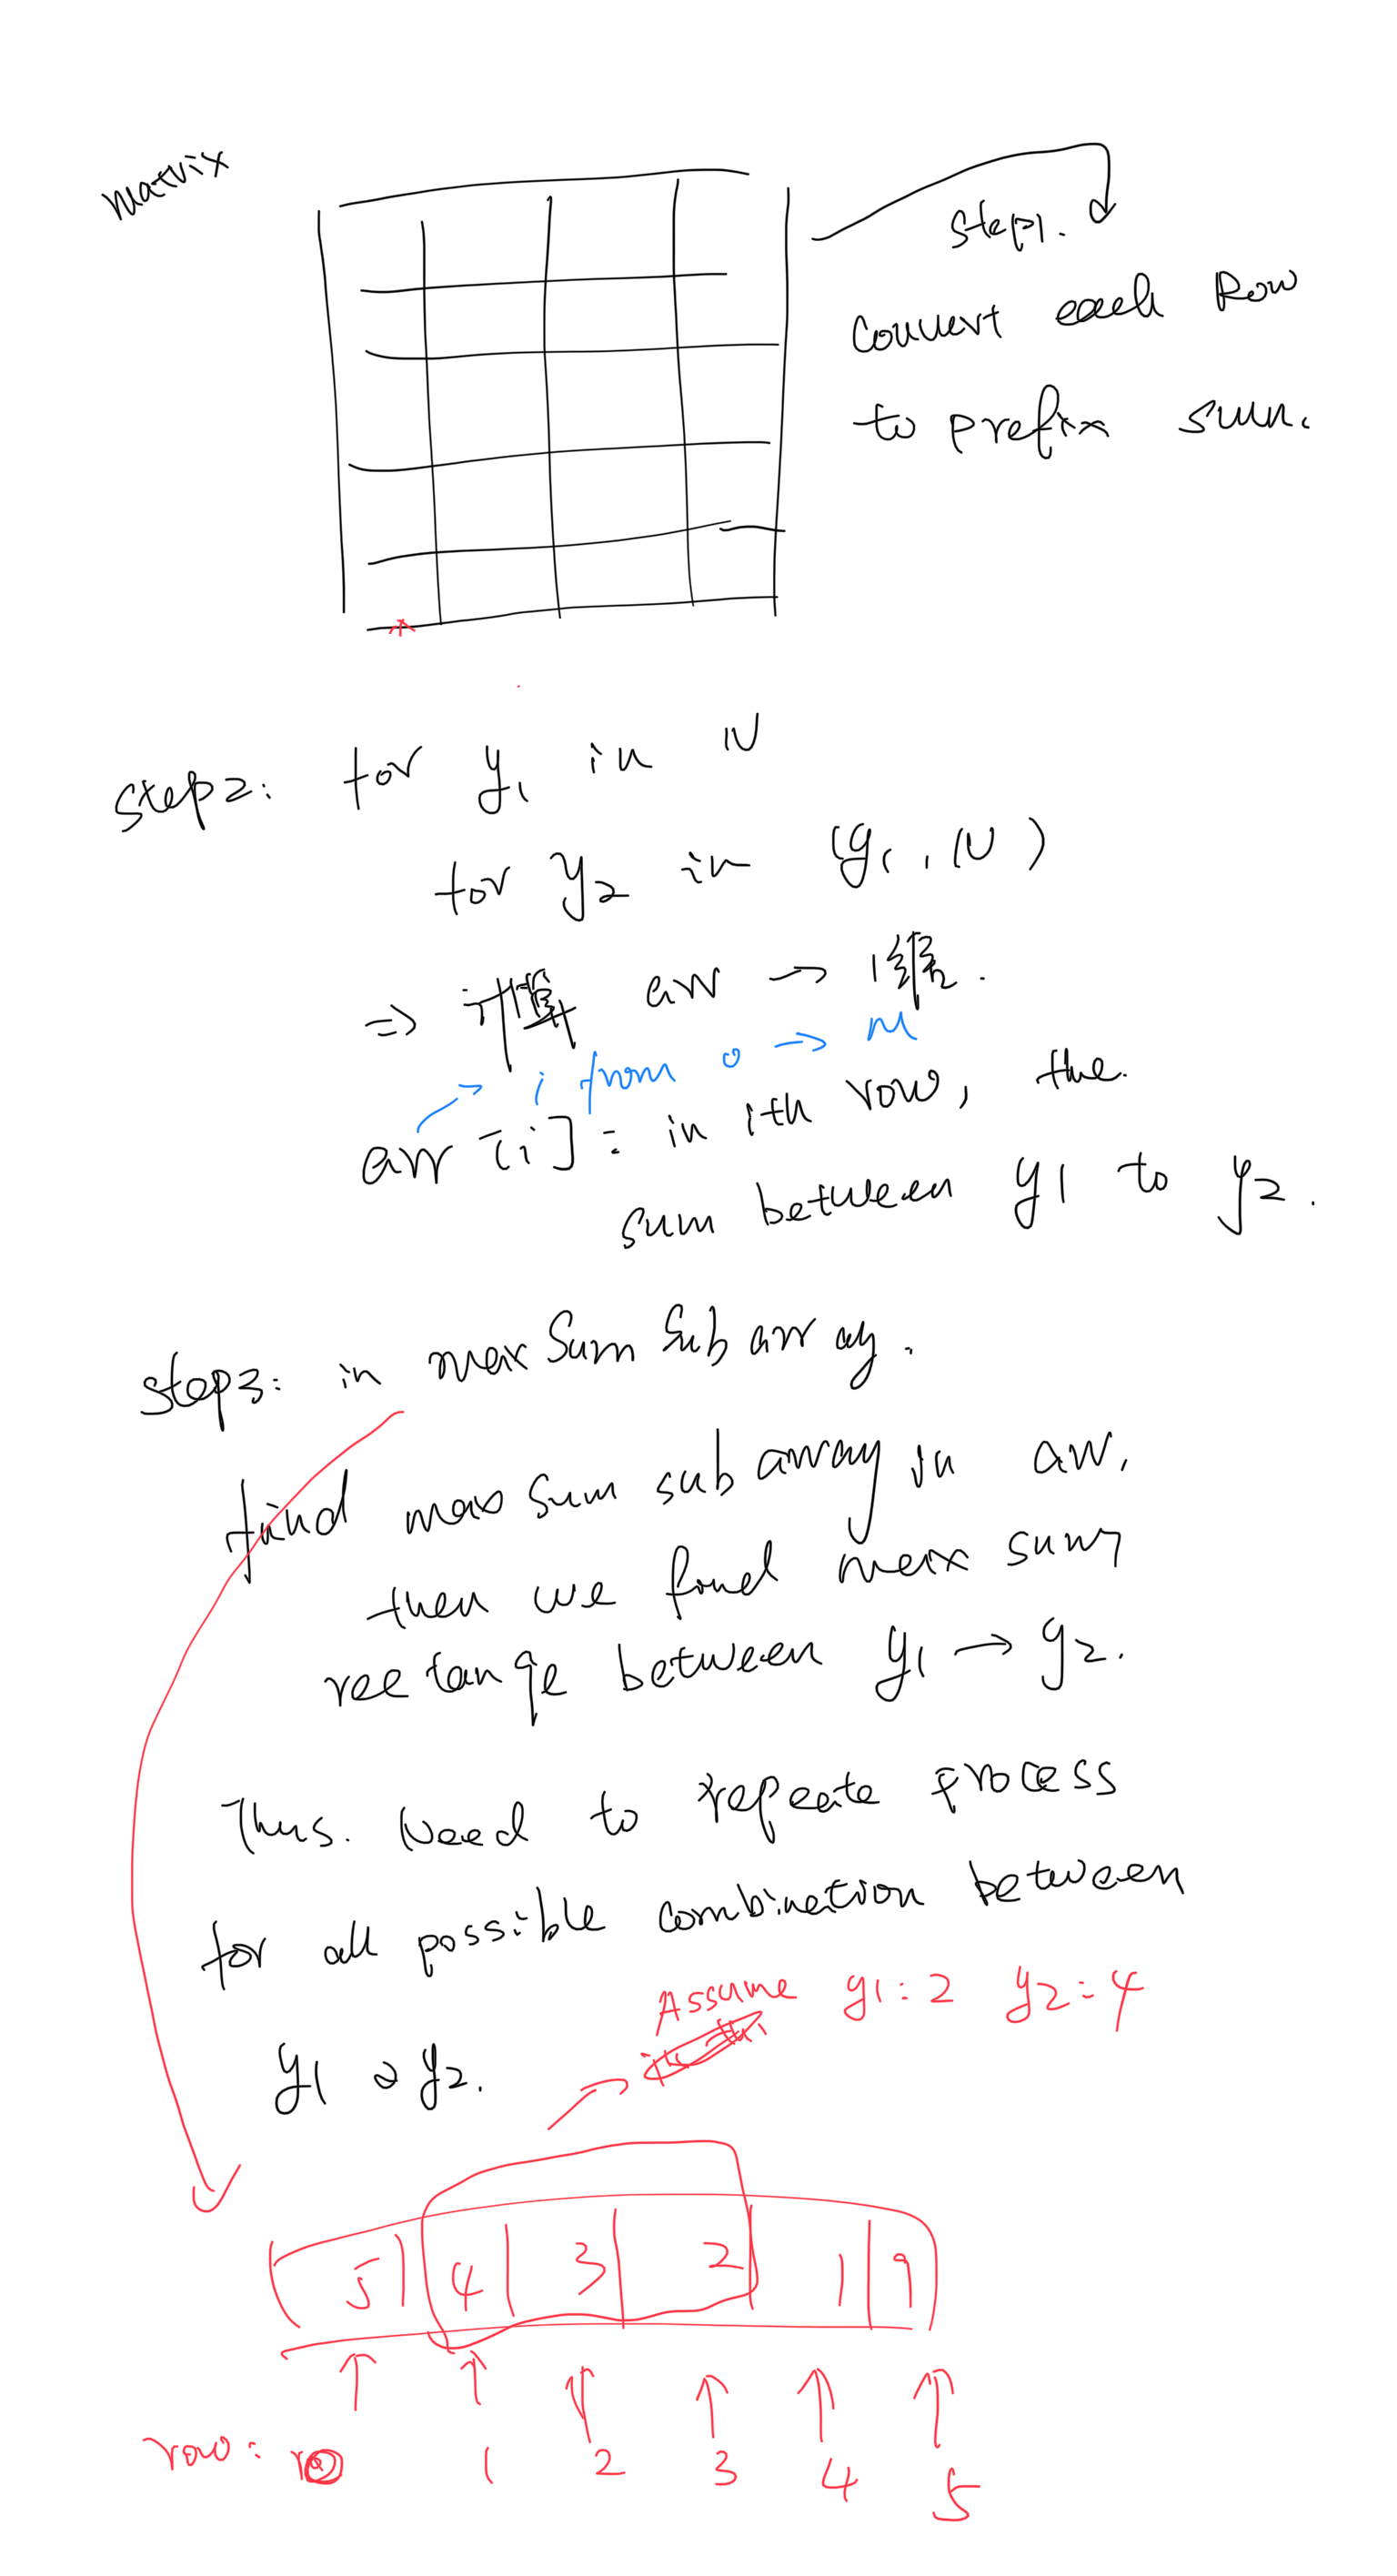 matrix
step1.
Convert each Row
to prefix sum.
step2: for y1 in N
for y2 in (y1, N)
=> 计算 arr → 1维.
i from 0 → M
arr[i] = in ith row, the
sum between y1 to y2.
step3: in maxSumSubarray.
find max sum subarray in arr.
then we found max sum
rectange between y1 → y2.
Thus. Need to repeate process
for all possible combination between
Assume y1:2 y2:4
y1 y2.
5 4 3 2 1 9
row: 0 1 2 3 4 5